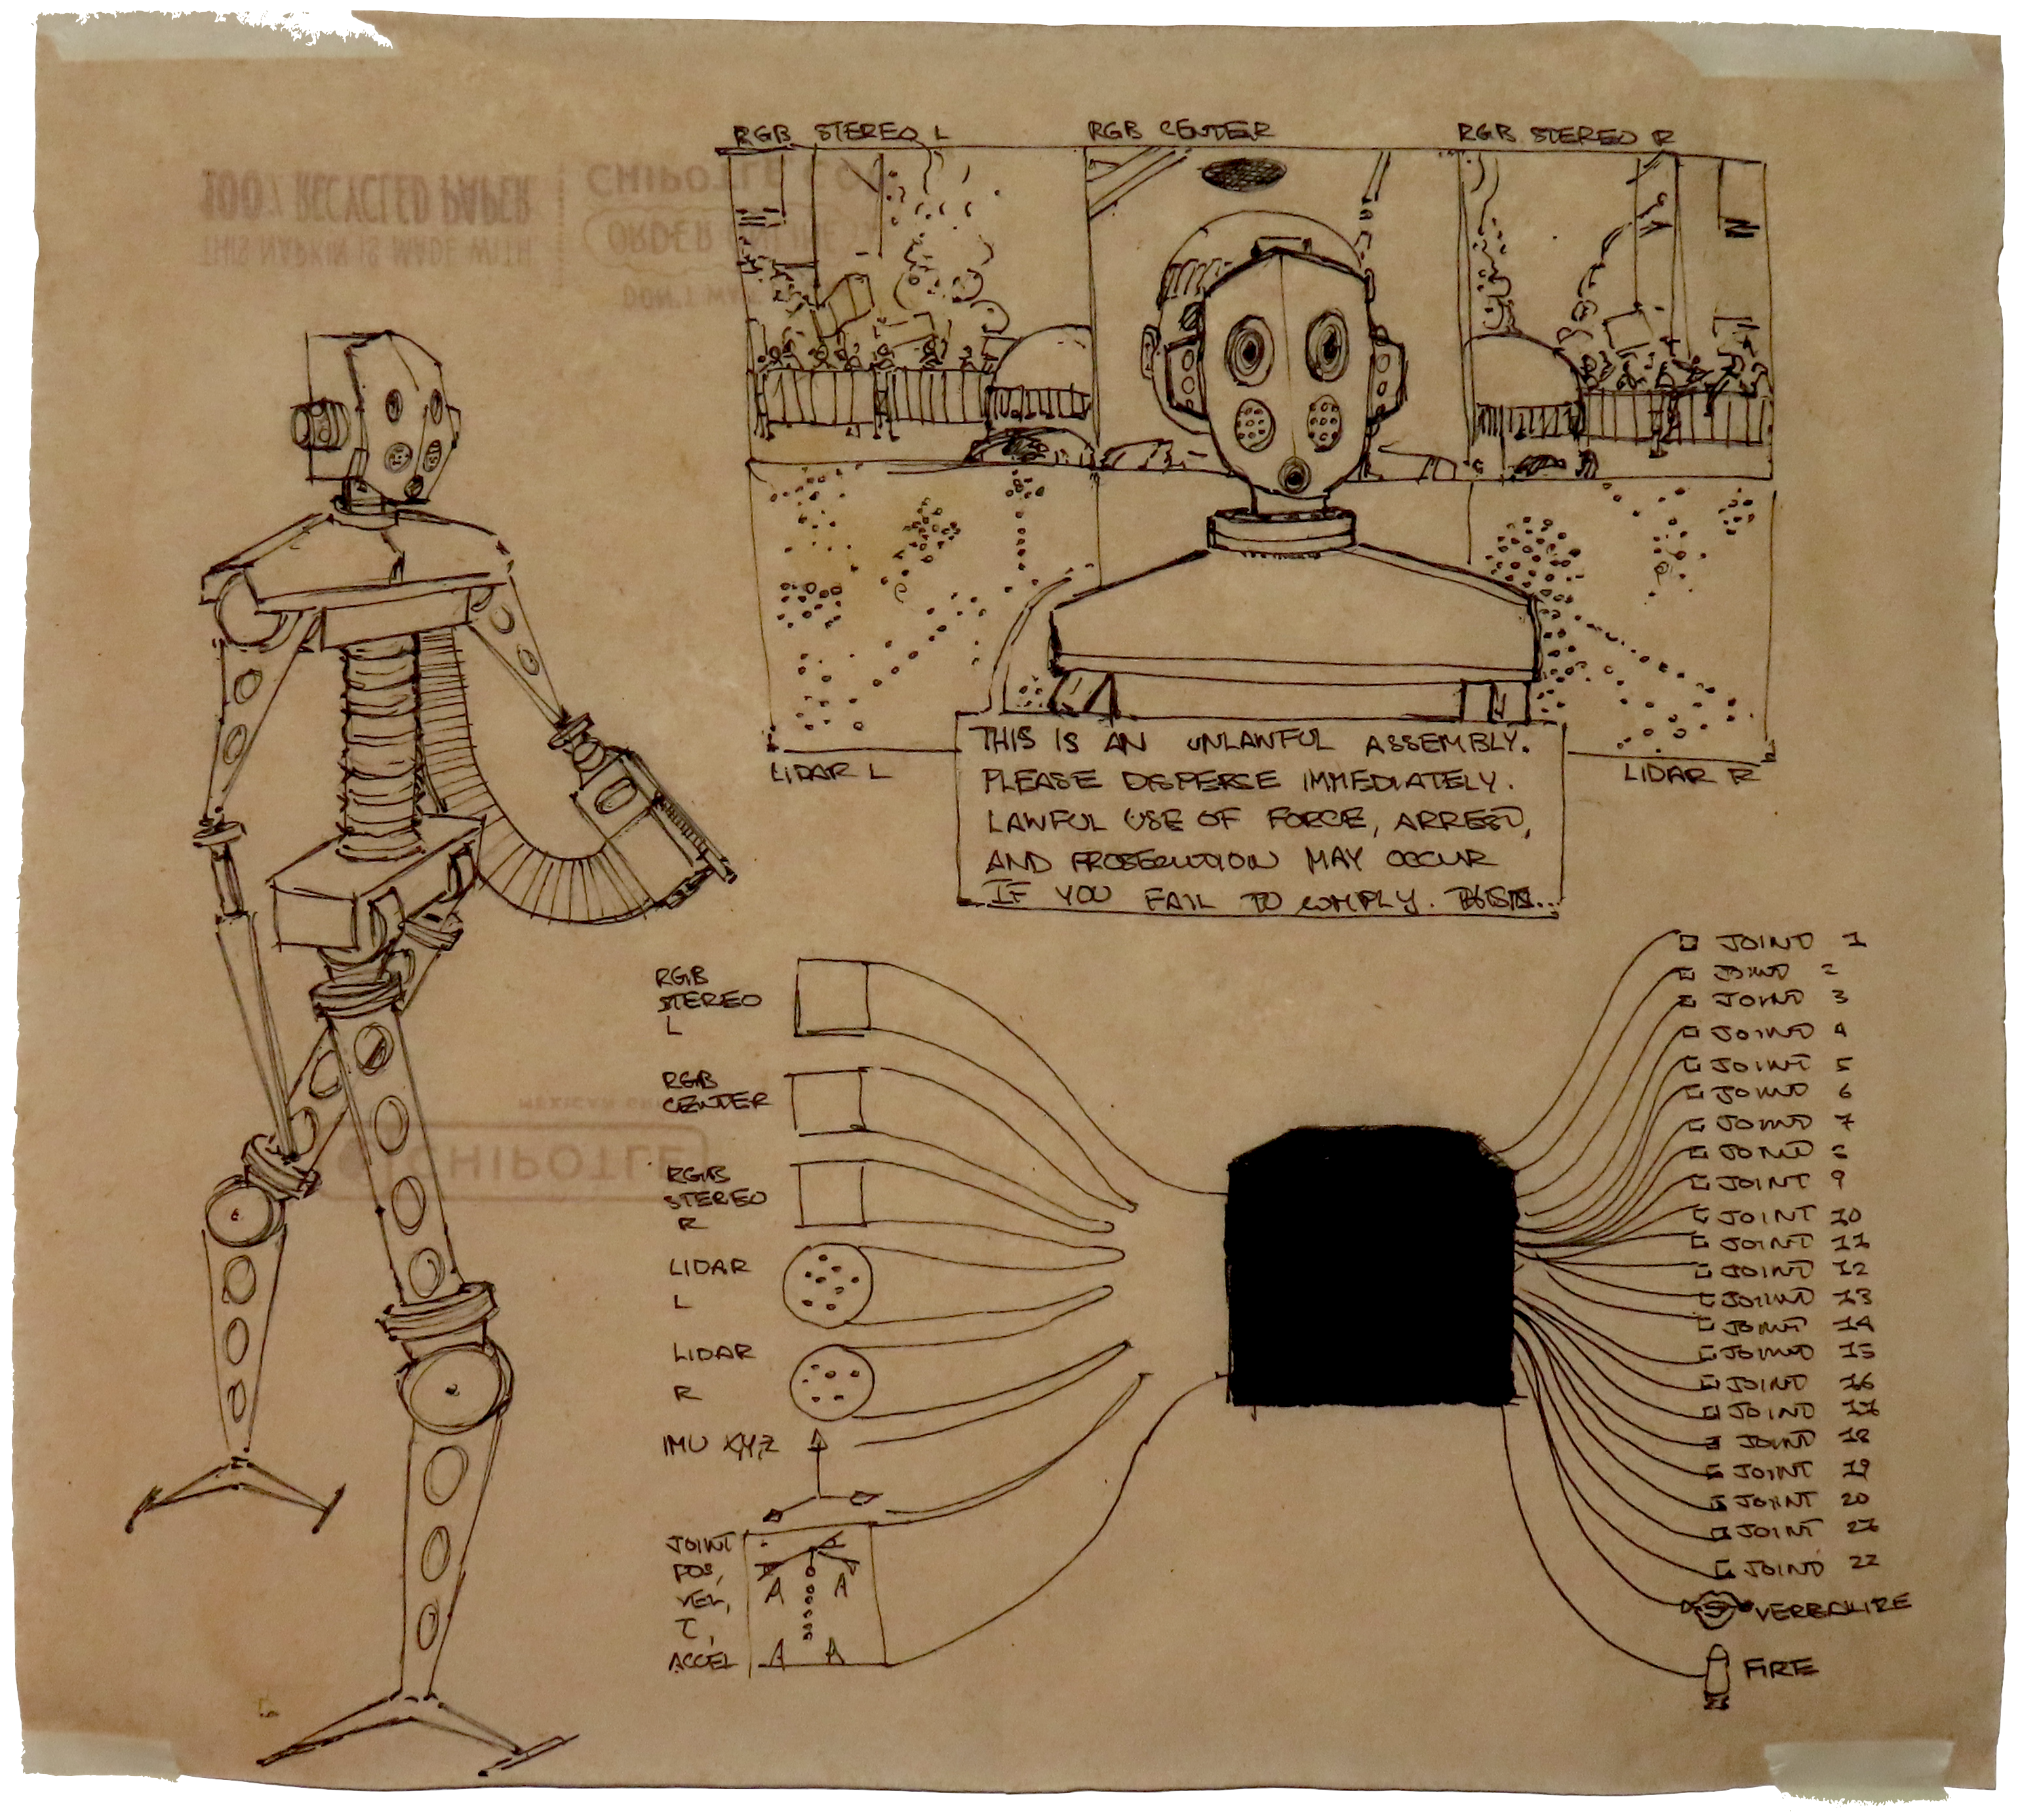 RGB STEREO L
RGB CENTER
RGB STEREO R
THIS NAPKIN IS MADE WITH
100% RECYCLED PAPER
ORDER ONLINE
CHIPOTLE
LIDAR L
LIDAR R
THIS IS AN UNLAWFUL ASSEMBLY.
PLEASE DISPERSE IMMEDIATELY.
LAWFUL USE OF FORCE, ARREST,
AND PROSECUTION MAY OCCUR
IF YOU FAIL TO COMPLY.
RGB
STEREO
L
RGB
CENTER
RGB
STEREO
R
LIDAR
L
LIDAR
R
IMU X,Y,Z
JOINT
POS,
VEL,
τ,
ACCEL
CHIPOTLE
JOINT 1
JOINT 2
JOINT 3
JOINT 4
JOINT 5
JOINT 6
JOINT 7
JOINT 8
JOINT 9
JOINT 10
JOINT 11
JOINT 12
JOINT 13
JOINT 14
JOINT 15
JOINT 16
JOINT 17
JOINT 18
JOINT 19
JOINT 20
JOINT 21
JOINT 22
VERBALIZE
FIRE